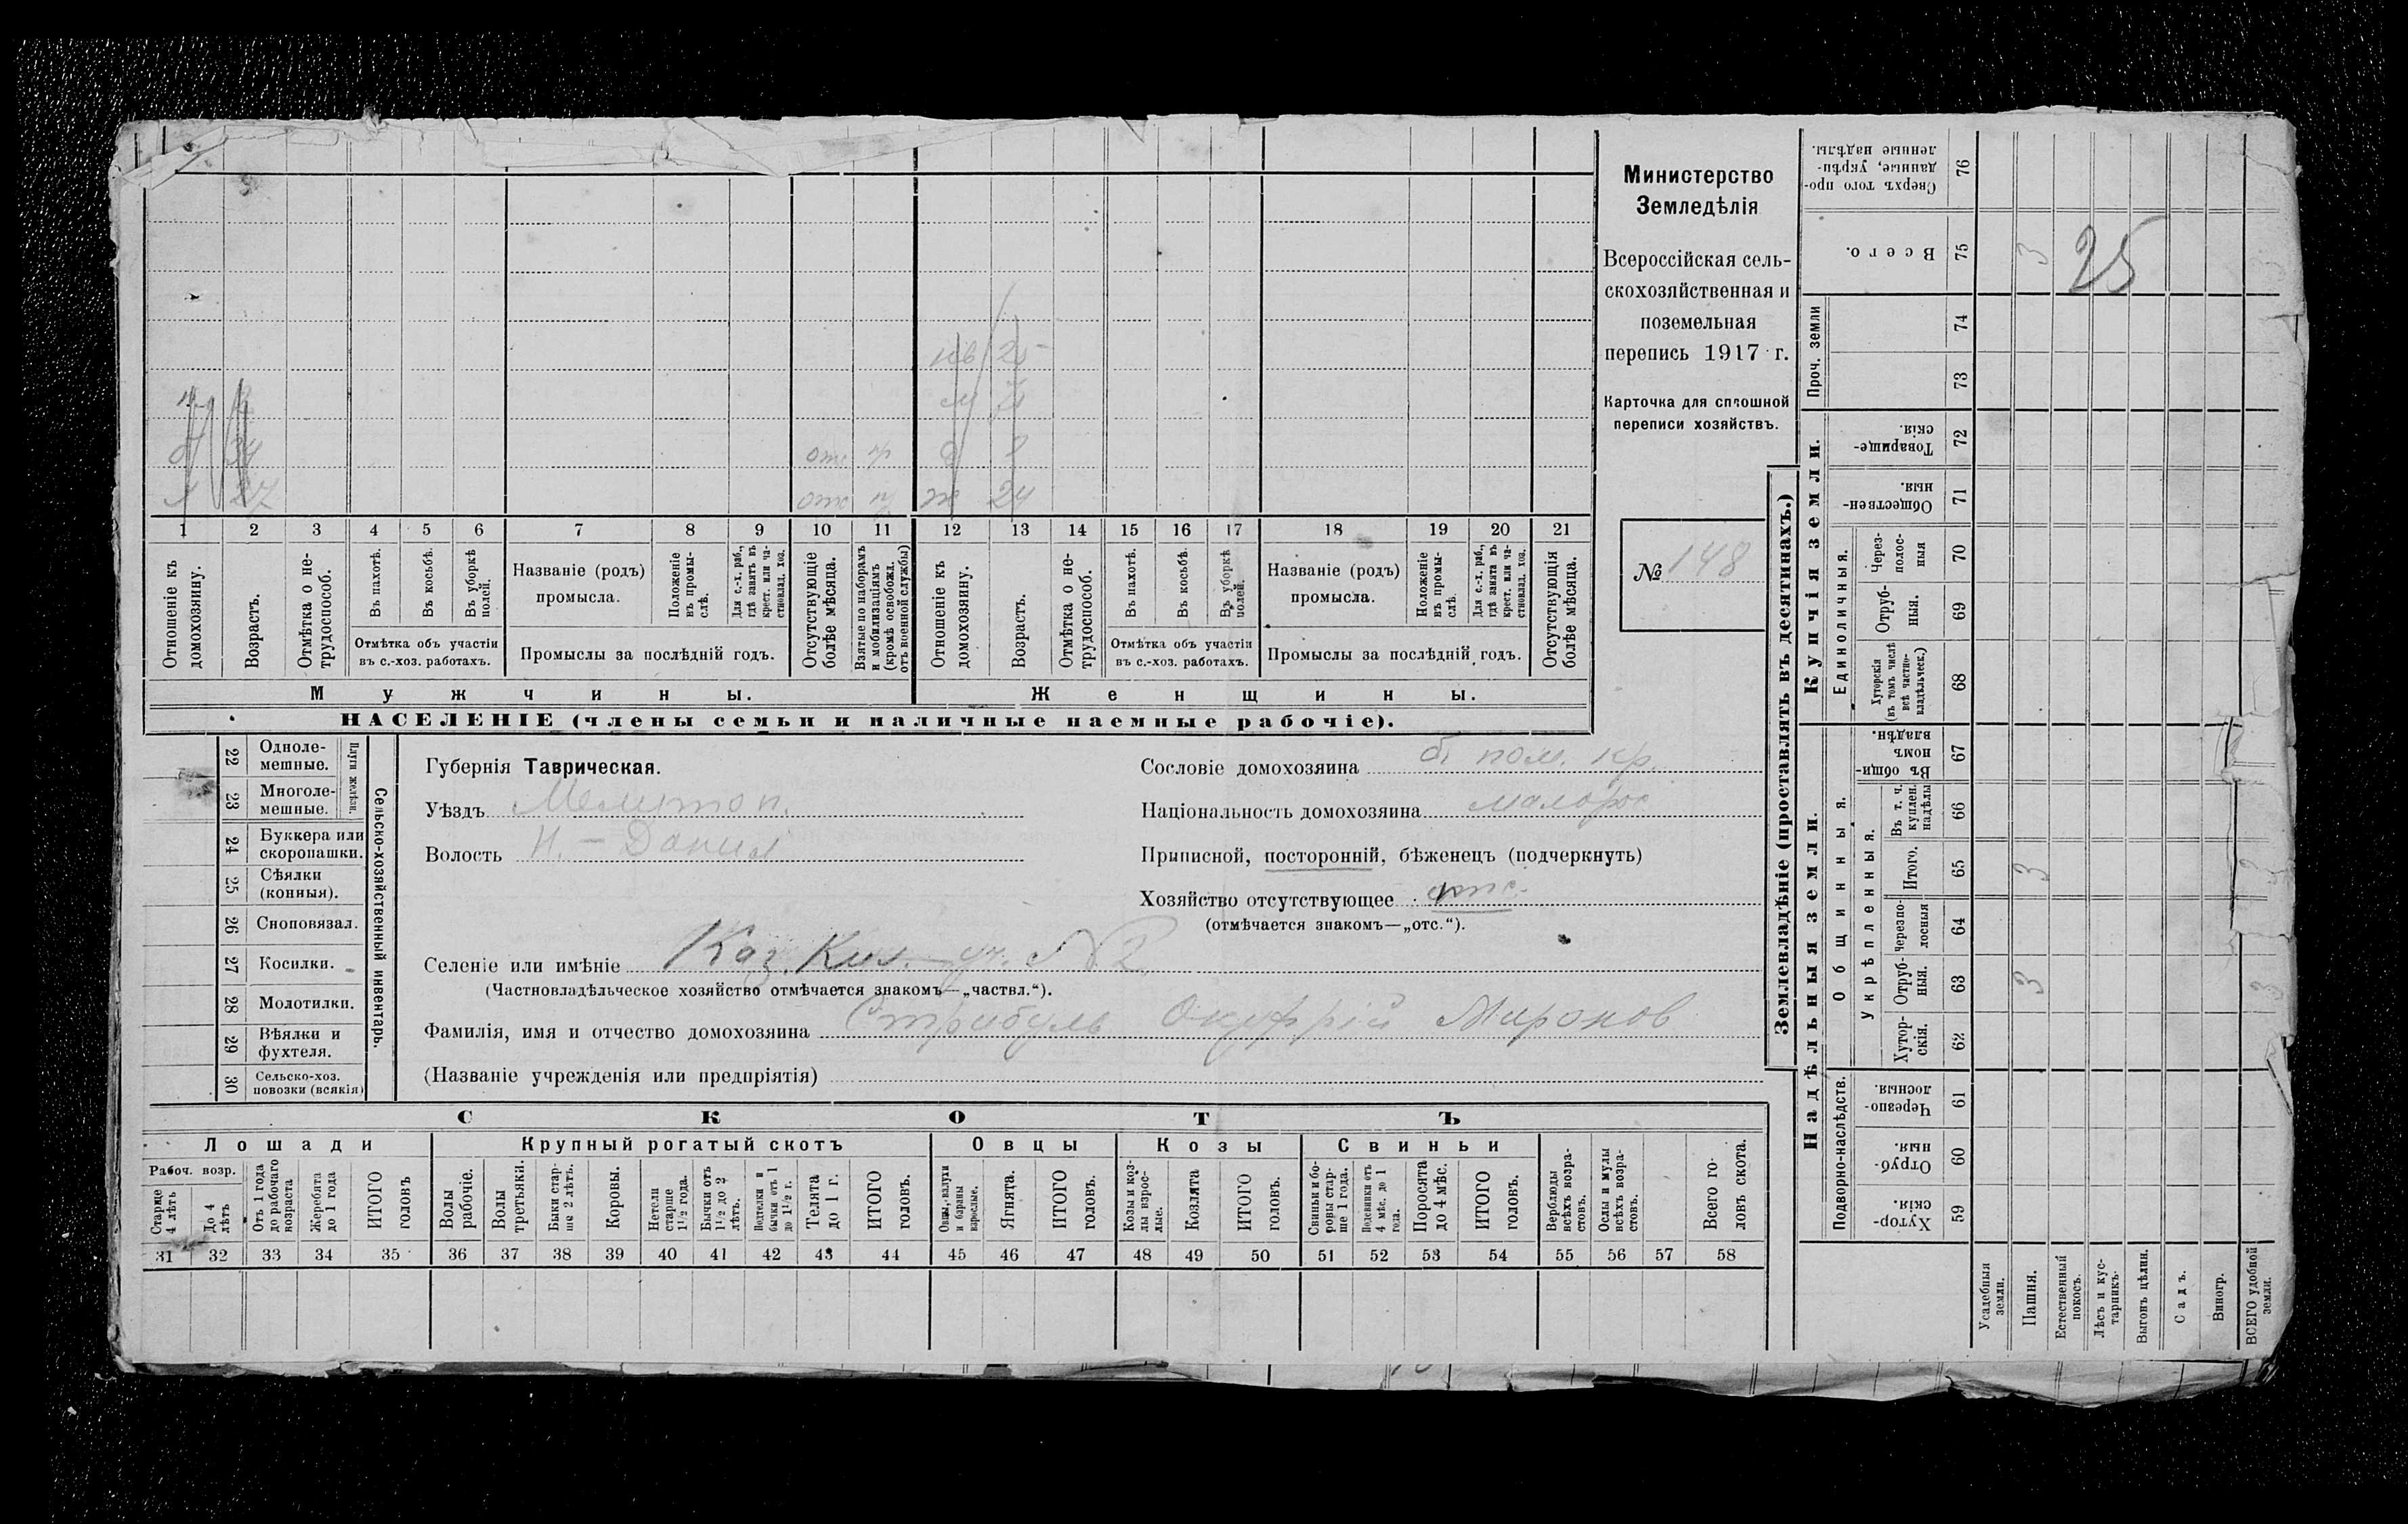 Министерство
Земледѣлія
Всероссійская сель-
скохозяйственная и
поземельная
перепись 1917 г.
Карточка для сплошной
переписи хозяйствъ.
№ 148
нв 25
м
б 34 отс
я 27 отс ж 24
1 2 3 4 5 6 7 8 9 10 11 12 13 14 15 16 17 18 19 20 21
Отношеніе къ домохозяину.
Возрастъ.
Отмѣтка о не-трудоспособ.
Въ пахотѣ.
Въ косьбѣ.
Въ уборкѣ полей.
Отмѣтка объ участіи
въ с.-хоз. работахъ.
Названіе (родъ)
промысла.
Положеніе въ промы-слѣ.
Для с.-х. раб., гдѣ занятъ въ крест. или ча-стновлад. хоз.
Промыслы за послѣдній годъ.
Отсутствующіе болѣе мѣсяца.
Взятые по наборамъ и мобилизаціямъ (кромѣ освобожд. отъ военной службы)
Отношеніе къ домохозяину.
Возрастъ.
Отмѣтка о не-трудоспособ.
Въ пахотѣ.
Въ косьбѣ.
Въ уборкѣ полей.
Отмѣтка объ участіи
въ с.-хоз. работахъ.
Названіе (родъ)
промысла.
Положеніе въ промы-слѣ.
Для с.-х. раб., гдѣ занята въ крест. или ча-стновлад. хоз.
Промыслы за послѣдній годъ.
Отсутствующія болѣе мѣсяца.
Мужчины. Женщины.
НАСЕЛЕНІЕ (члены семьи и наличные наемные рабочіе).
22 Одноле-мешные.
23 Многоле-мешные.
Плуги желѣзн.
24 Буккера или скоропашки.
25 Сѣялки (конныя).
26 Сноповязал.
27 Косилки.
28 Молотилки.
29 Вѣялки и фухтеля.
30 Сельско-хоз. повозки (всякія)
Сельско-хозяйственный инвентарь.
Губернія Таврическая.
Уѣздъ Мелитоп.
Волость Н.-Данил
Сословіе домохозяина б. пом. кр.
Національность домохозяина малорос
Приписной, посторонній, бѣженецъ (подчеркнуть)
Хозяйство отсутствующее отс.
(отмѣчается знакомъ—„отс.“).
Селеніе или имѣніе Каз. Кил. — уч. №2.
(Частновладѣльческое хозяйство отмѣчается знакомъ—„частвл.“).
Фамилія, имя и отчество домохозяина Стрибуль Онуфрій Миронов
(Названіе учрежденія или предпріятія)
СКОТЪ
Лошади Крупный рогатый скотъ Овцы Козы Свиньи
Рабоч. возр.
Старше 4 лѣтъ
До 4 лѣтъ
Отъ 1 года до рабочаго возраста
Жеребята до 1 года
ИТОГО головъ
Волы рабочіе.
Волы третьяки.
Быки стар-ше 2 лѣтъ.
Коровы.
Нетели старше 1½ года.
Бычки отъ 1½ до 2 лѣтъ.
Подтелки и бычки отъ 1 до 1½ г.
Телята до 1 г.
ИТОГО головъ.
Овцы, валухи и бараны взрослые.
Ягнята.
ИТОГО головъ.
Козы и коз-лы взрос-лые.
Козлята
ИТОГО головъ.
Свиньи и бо-ровы стар-ше 1 года.
Подсвинки отъ 4 мѣс. до 1 года.
Поросята до 4 мѣс.
ИТОГО головъ.
Верблюды всѣхъ возра-стовъ.
Ослы и мулы всѣхъ возра-стовъ.
Всего го-ловъ скота.
31 32 33 34 35 36 37 38 39 40 41 42 43 44 45 46 47 48 49 50 51 52 53 54 55 56 57 58
Землевладѣніе (проставлять въ десятинахъ.)
Надѣльныя земли.
Купчія земли.
Проч. земли
Подворно-наслѣдств.
Общинныя.
Укрѣпленныя.
Единоличныя.
Сверхъ того про-данные, укрѣп-ленные надѣлы. 76
Всего. 75 3 25
74
73
Товарище-скія. 72
Обществен-ныя. 71
Через-полос-ныя 70
Отруб-ныя. 69
Хуторскія (въ томъ числѣ всѣ частно-владѣльческ.) 68
Въ общи-номъ владѣн. 67
Въ т. ч. куплен. надѣлы 66
Итого. 65 3
Черезпо-лосныя 64
Отруб-ныя. 63 3 3
Хутор-скія. 62
Черезпо-лосныя. 61
Отруб-ныя. 60
Хутор-скія. 59
Усадебныя земли.
Пашня.
Естественный покосъ.
Лѣсъ и кус-тарникъ.
Выгонъ цѣлин.
Садъ.
Виногр.
ВСЕГО удобной земли.